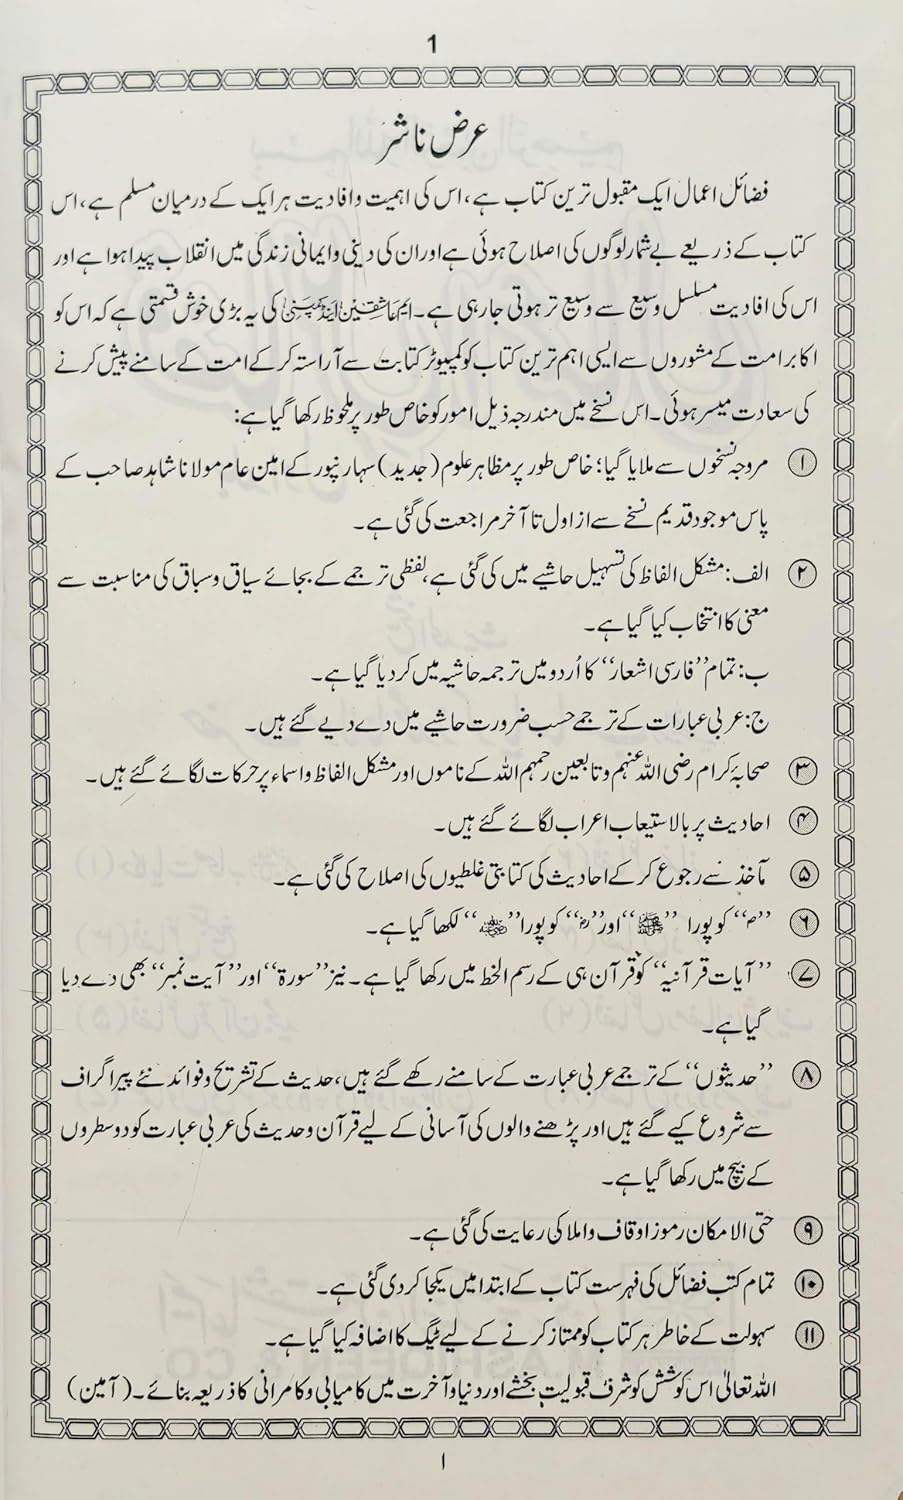 1
عرض ناشر
فضائل اعمال ایک مقبول ترین کتاب ہے، اس کی اہمیت وافادیت ہر ایک کے درمیان مسلم ہے، اس
کتاب کے ذریعے بے شمار لوگوں کی اصلاح ہوئی ہے اور ان کی دینی وایمانی زندگی میں انقلاب پیدا ہوا ہے اور
اس کی افادیت مسلسل وسیع سے وسیع تر ہوتی جارہی ہے۔ ایم عاشقین اینڈ کمپنی کی یہ بڑی خوش قسمتی ہے کہ اس کو
اکابر امت کے مشوروں سے ایسی اہم ترین کتاب کو کمپیوٹر کتابت سے آراستہ کرکے امت کے سامنے پیش کرنے
کی سعادت میسر ہوئی۔ اس نسخے میں مندرجہ ذیل امور کو خاص طور پر ملحوظ رکھا گیا ہے:
۱ مروجہ نسخوں سے ملایا گیا؛ خاص طور پر مظاہر علوم (جدید) سہارنپور کے امین عام مولانا شاہد صاحب کے
پاس موجود قدیم نسخے سے از اول تا آخر مراجعت کی گئی ہے۔
۲ الف: مشکل الفاظ کی تسہیل حاشیے میں کی گئی ہے، لفظی ترجمے کے بجائے سیاق وسباق کی مناسبت سے
معنی کا انتخاب کیا گیا ہے۔
ب: تمام ”فارسی اشعار“ کا اُردو میں ترجمہ حاشیہ میں کردیا گیا ہے۔
ج: عربی عبارات کے ترجمے حسب ضرورت حاشیے میں دے دیے گئے ہیں۔
۳ صحابۂ کرام رضی اللہ عنہم وتابعین رحمہم اللہ کے ناموں اور مشکل الفاظ واسماء پر حرکات لگائے گئے ہیں۔
۴ احادیث پر بالاستیعاب اعراب لگائے گئے ہیں۔
۵ مآخذ سے رجوع کرکے احادیث کی کتابتی غلطیوں کی اصلاح کی گئی ہے۔
۶ ”ؐ“ کو پورا ”ﷺ“ اور ”ؓ“ کو پورا ”رضی اللہ عنہ“ لکھا گیا ہے۔
۷ ”آیات قرآنیہ“ کو قرآن ہی کے رسم الخط میں رکھا گیا ہے۔ نیز ”سورۃ“ اور ”آیت نمبر“ بھی دے دیا
گیا ہے۔
۸ ”حدیثوں“ کے ترجمے عربی عبارت کے سامنے رکھے گئے ہیں، حدیث کے تشریح وفوائد نئے پیراگراف
سے شروع کیے گئے ہیں اور پڑھنے والوں کی آسانی کے لیے قرآن وحدیث کی عربی عبارت کو دو سطروں
کے بیچ میں رکھا گیا ہے۔
۹ حتی الامکان رموز اوقاف واملا کی رعایت کی گئی ہے۔
۱۰ تمام کتب فضائل کی فہرست کتاب کے ابتدا میں یکجا کردی گئی ہے۔
۱۱ سہولت کے خاطر ہر کتاب کو ممتاز کرنے کے لیے ٹیگ کا اضافہ کیا گیا ہے۔
اللہ تعالیٰ اس کوشش کو شرف قبولیت بخشے اور دنیا وآخرت میں کامیابی وکامرانی کا ذریعہ بنائے۔ (آمین)
۱